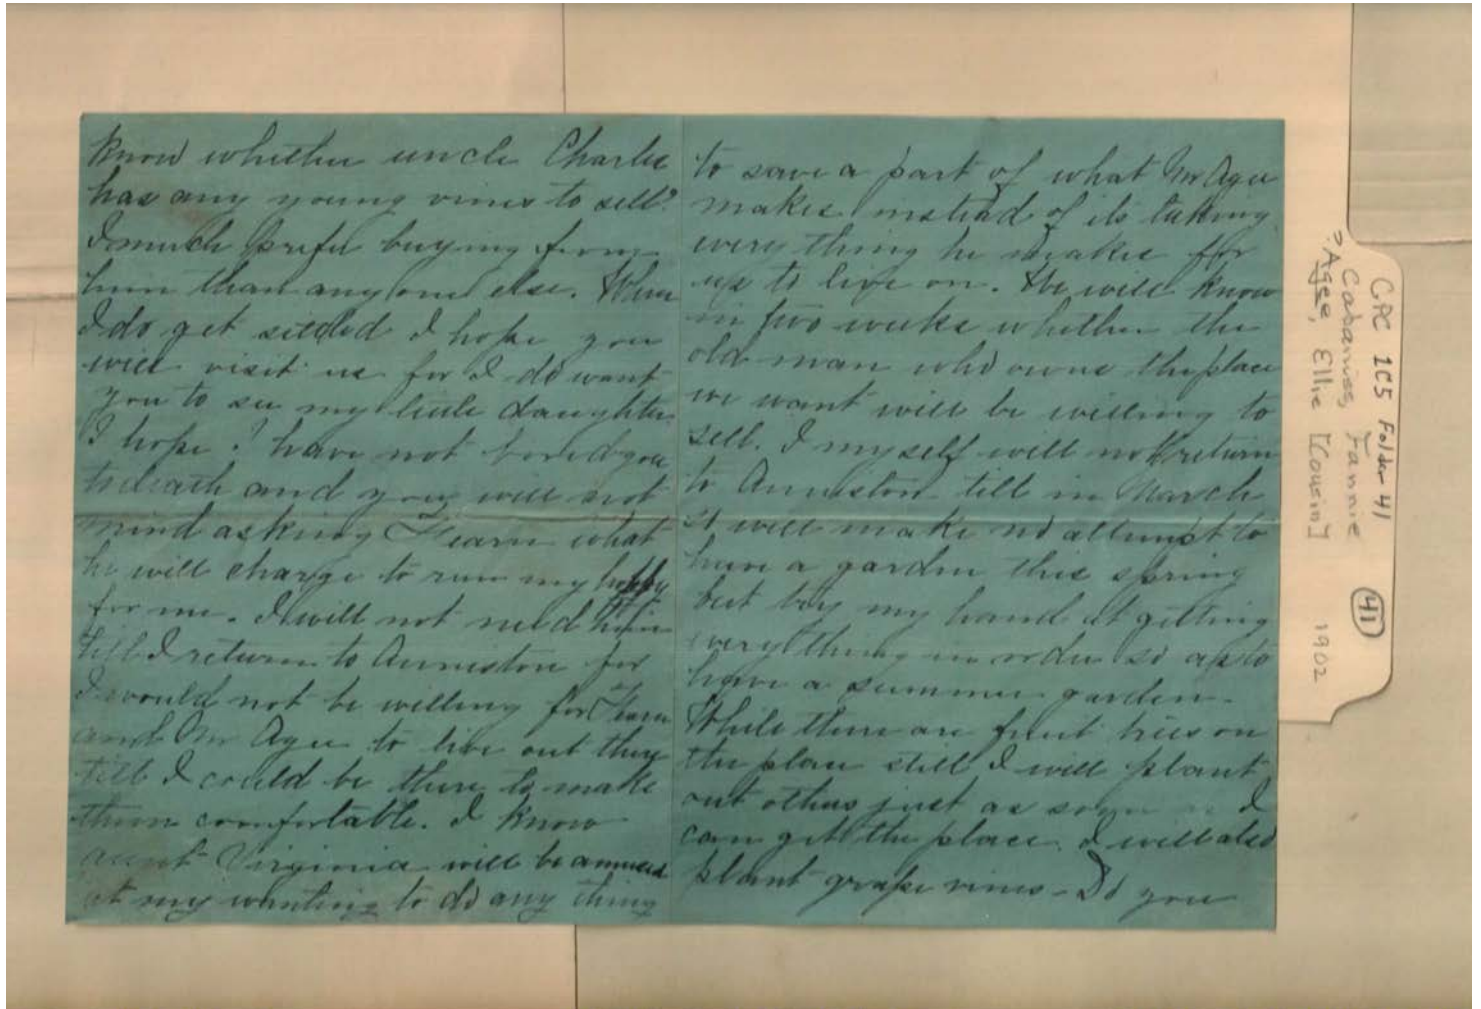 know whether uncle Charlie
has any young vines to sell?
I much prefer buying from
him than any one else. When
I do get settled I hope you
will visit us for I do want
you to see my little daughter.
I hope I have not bored you
to death and you will not
mind asking what
he will charge to run my
for me. I will not need him
till I return to Anniston for
I would not be willing for
and Mr Agee to live out there
till I could be there to make
them comfortable. I know
aunt Virginia will be amused
at my wanting to do any thing
to save a part of what Mr Agee
makes instead of its taking
every thing he makes for
us to live on. We will know
in two weeks whether the
old man who owns the place
we want will be willing to
sell. I myself will not return
to Anniston till in March
& will make no attempt to
have a garden this spring
but try my hand at getting
everything in order so as to
have a summer garden.
While there are fruit trees on
the place still I will plant
out others just as soon as I
can get the place. I will also
plant grape vines - Do you
CPC 1C5 Folder 41
Cabaniss, Fannie 41 1902
?Agee, Ellie [Cousin]